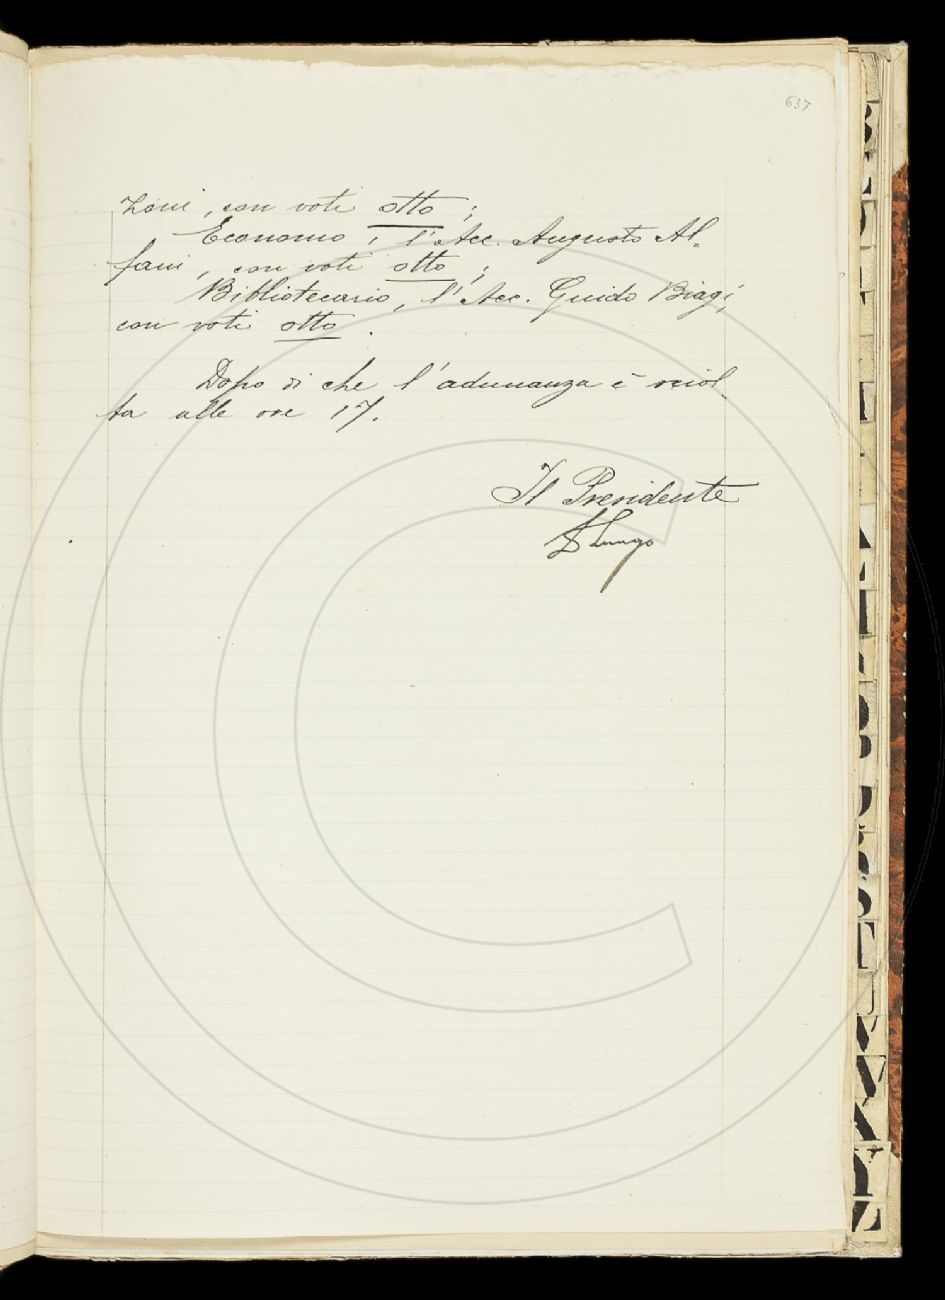 637
zoni, con voti otto;
Economo, l'Acc. Augusto Al-
fani, con voti otto;
Bibliotecario, l'Acc. Guido Biagi,
con voti otto.
Dopo di che l'adunanza è sciol
ta alle ore 17.
Il Presidente
Lungo